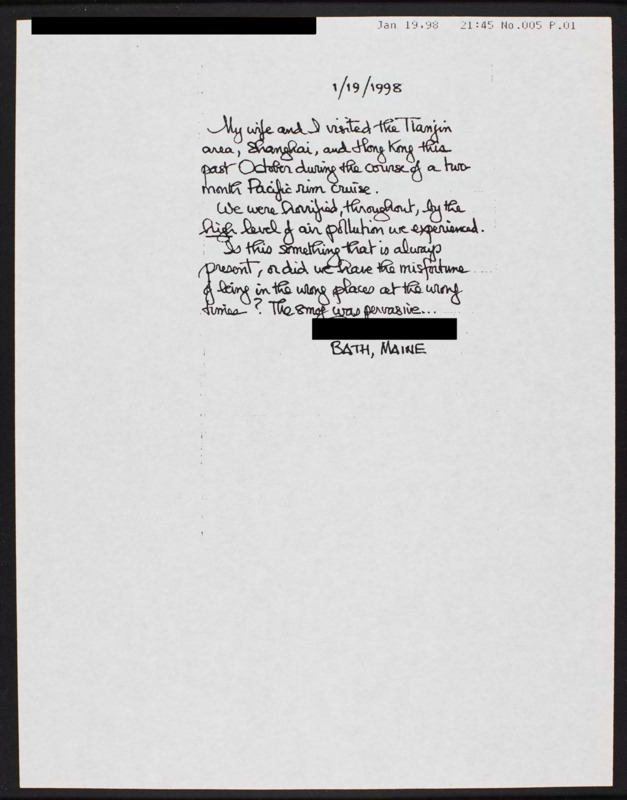 Jan 19.98 21:45 No.005 P.01
1/19/1998
My wife and I visited the Tianjin
area, Shanghai, and Hong Kong this
past October during the course of a two-
month Pacific rim cruise.
We were horrified, throughout, by the
high level of air pollution we experienced.
Is this something that is always
present, or did we have the misfortune
of being in the wrong places at the wrong
times? The smog was pervasive...
BATH, MAINE